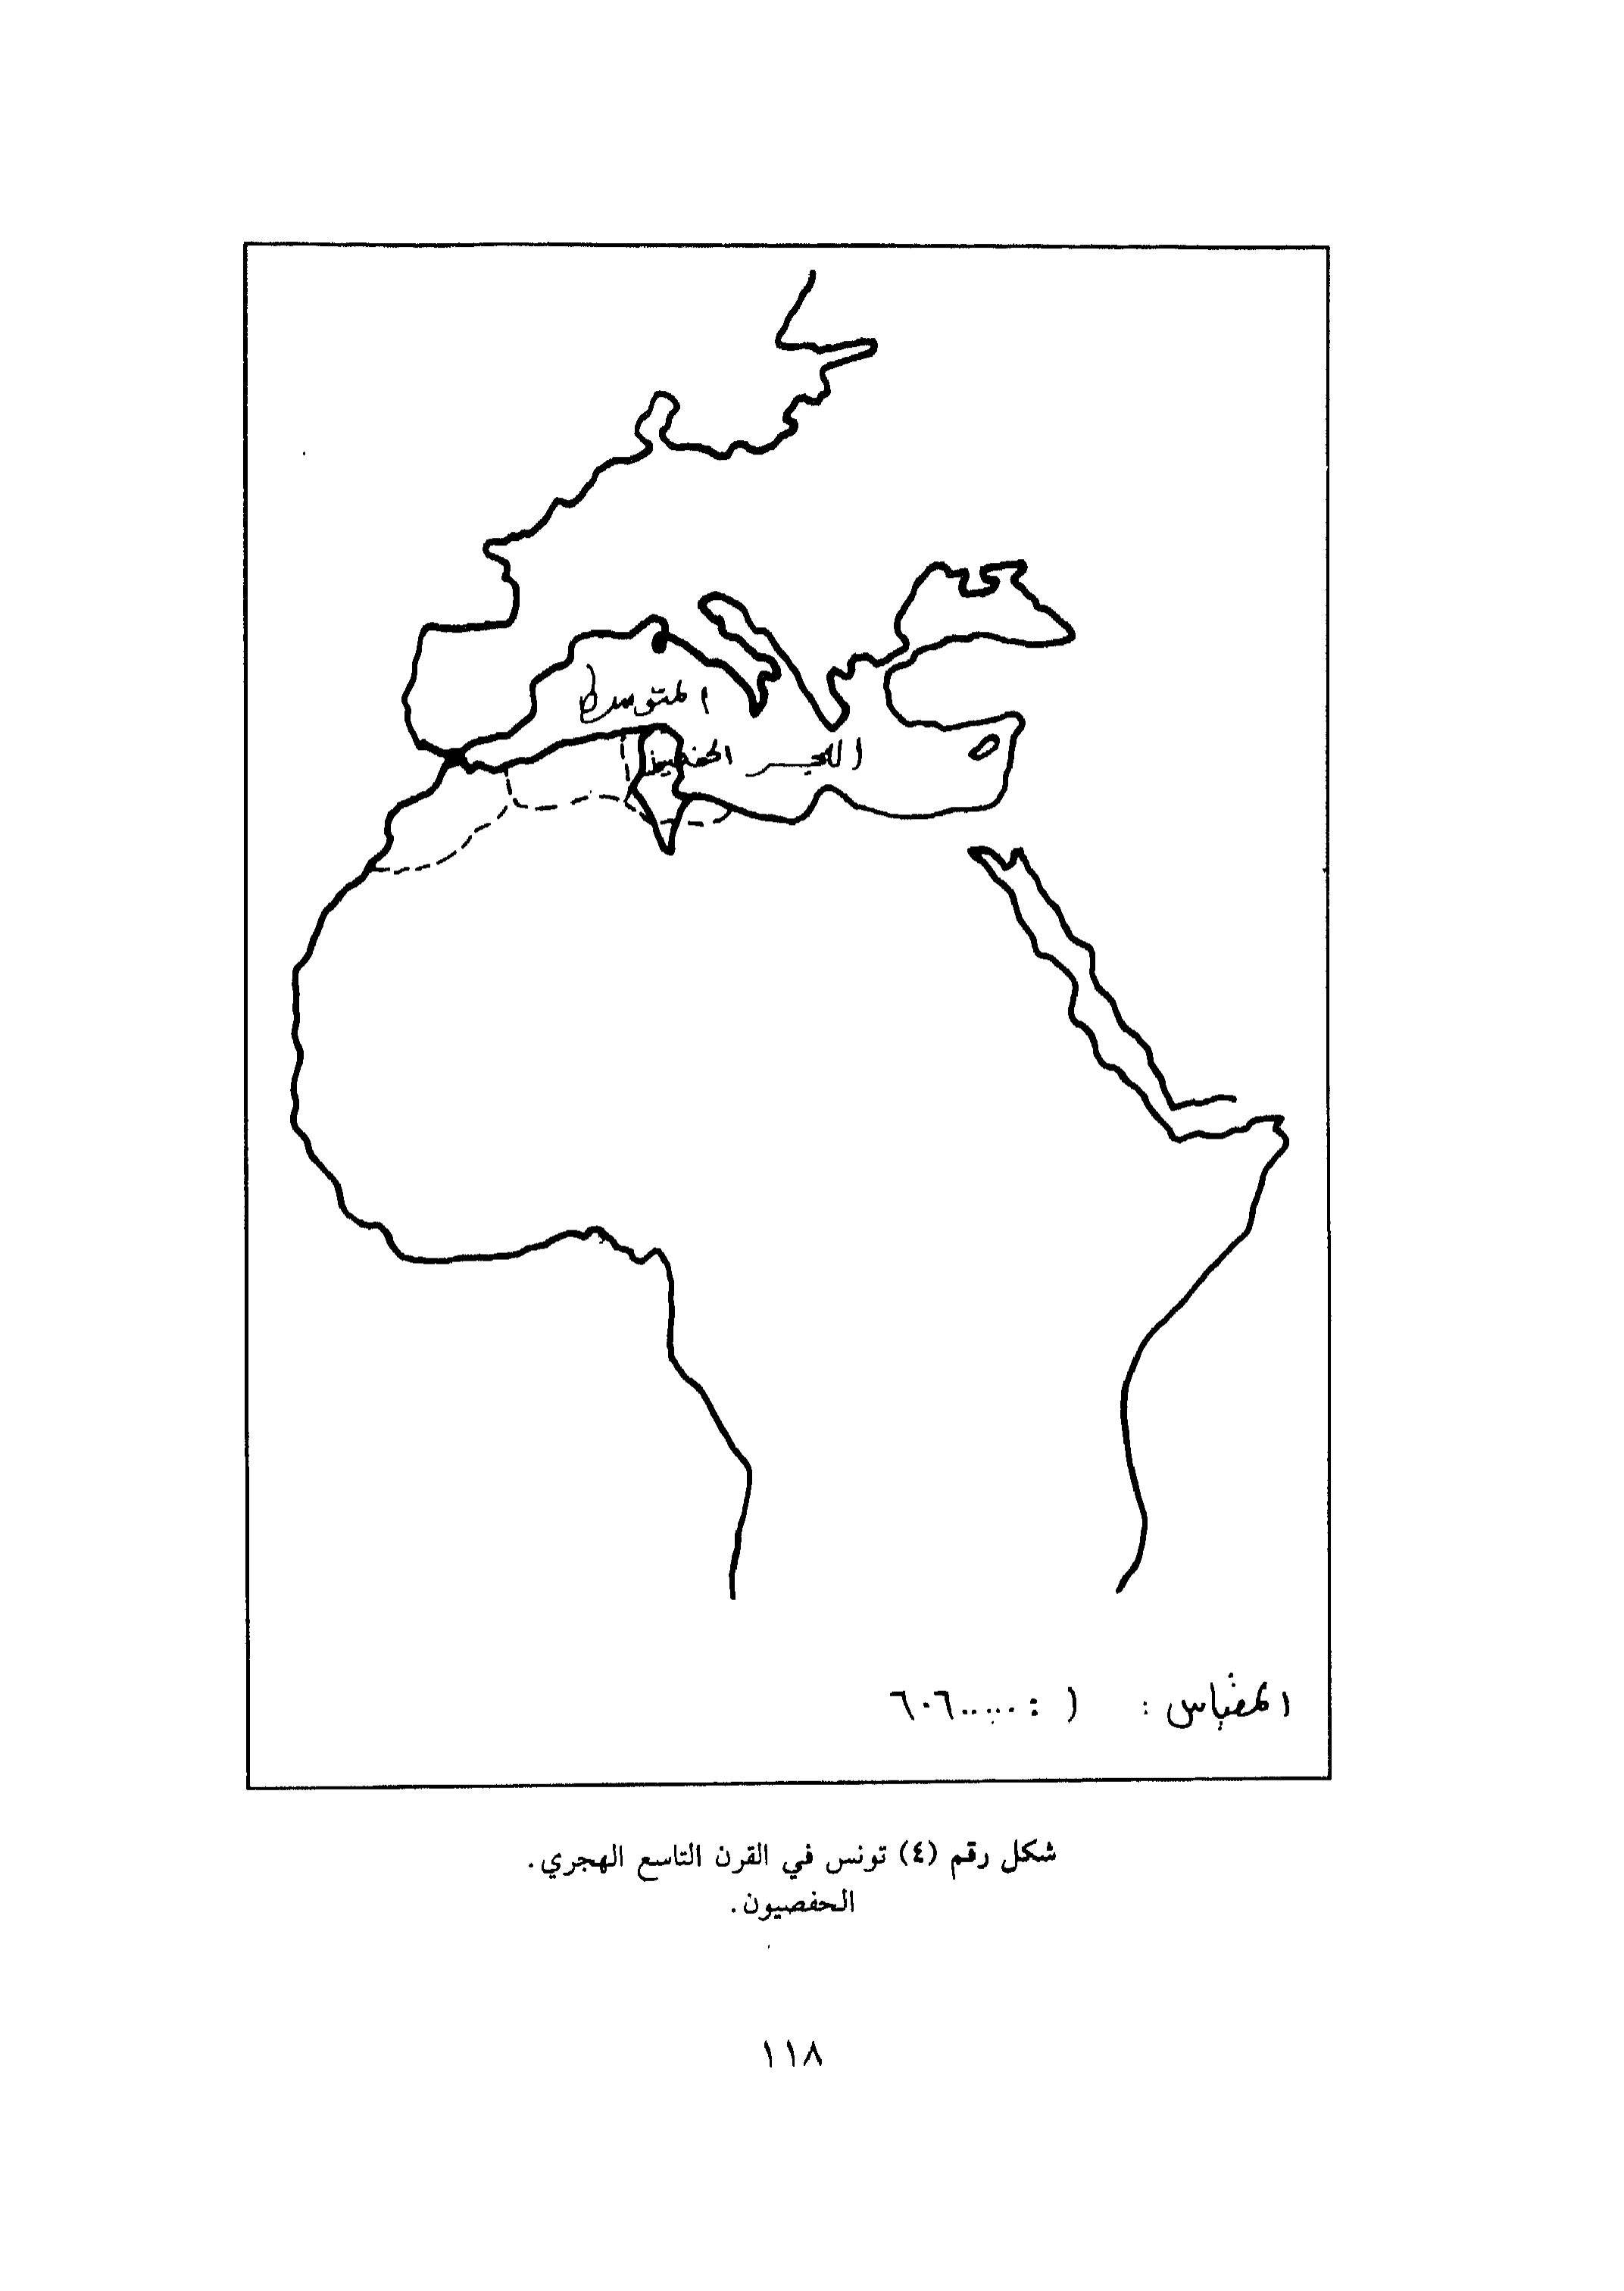 المتوسط
البحر
المقياس : ١ :
شكل رقم (٤) تونس في القرن التاسع الهجري .
الحفصيون .
١١٨